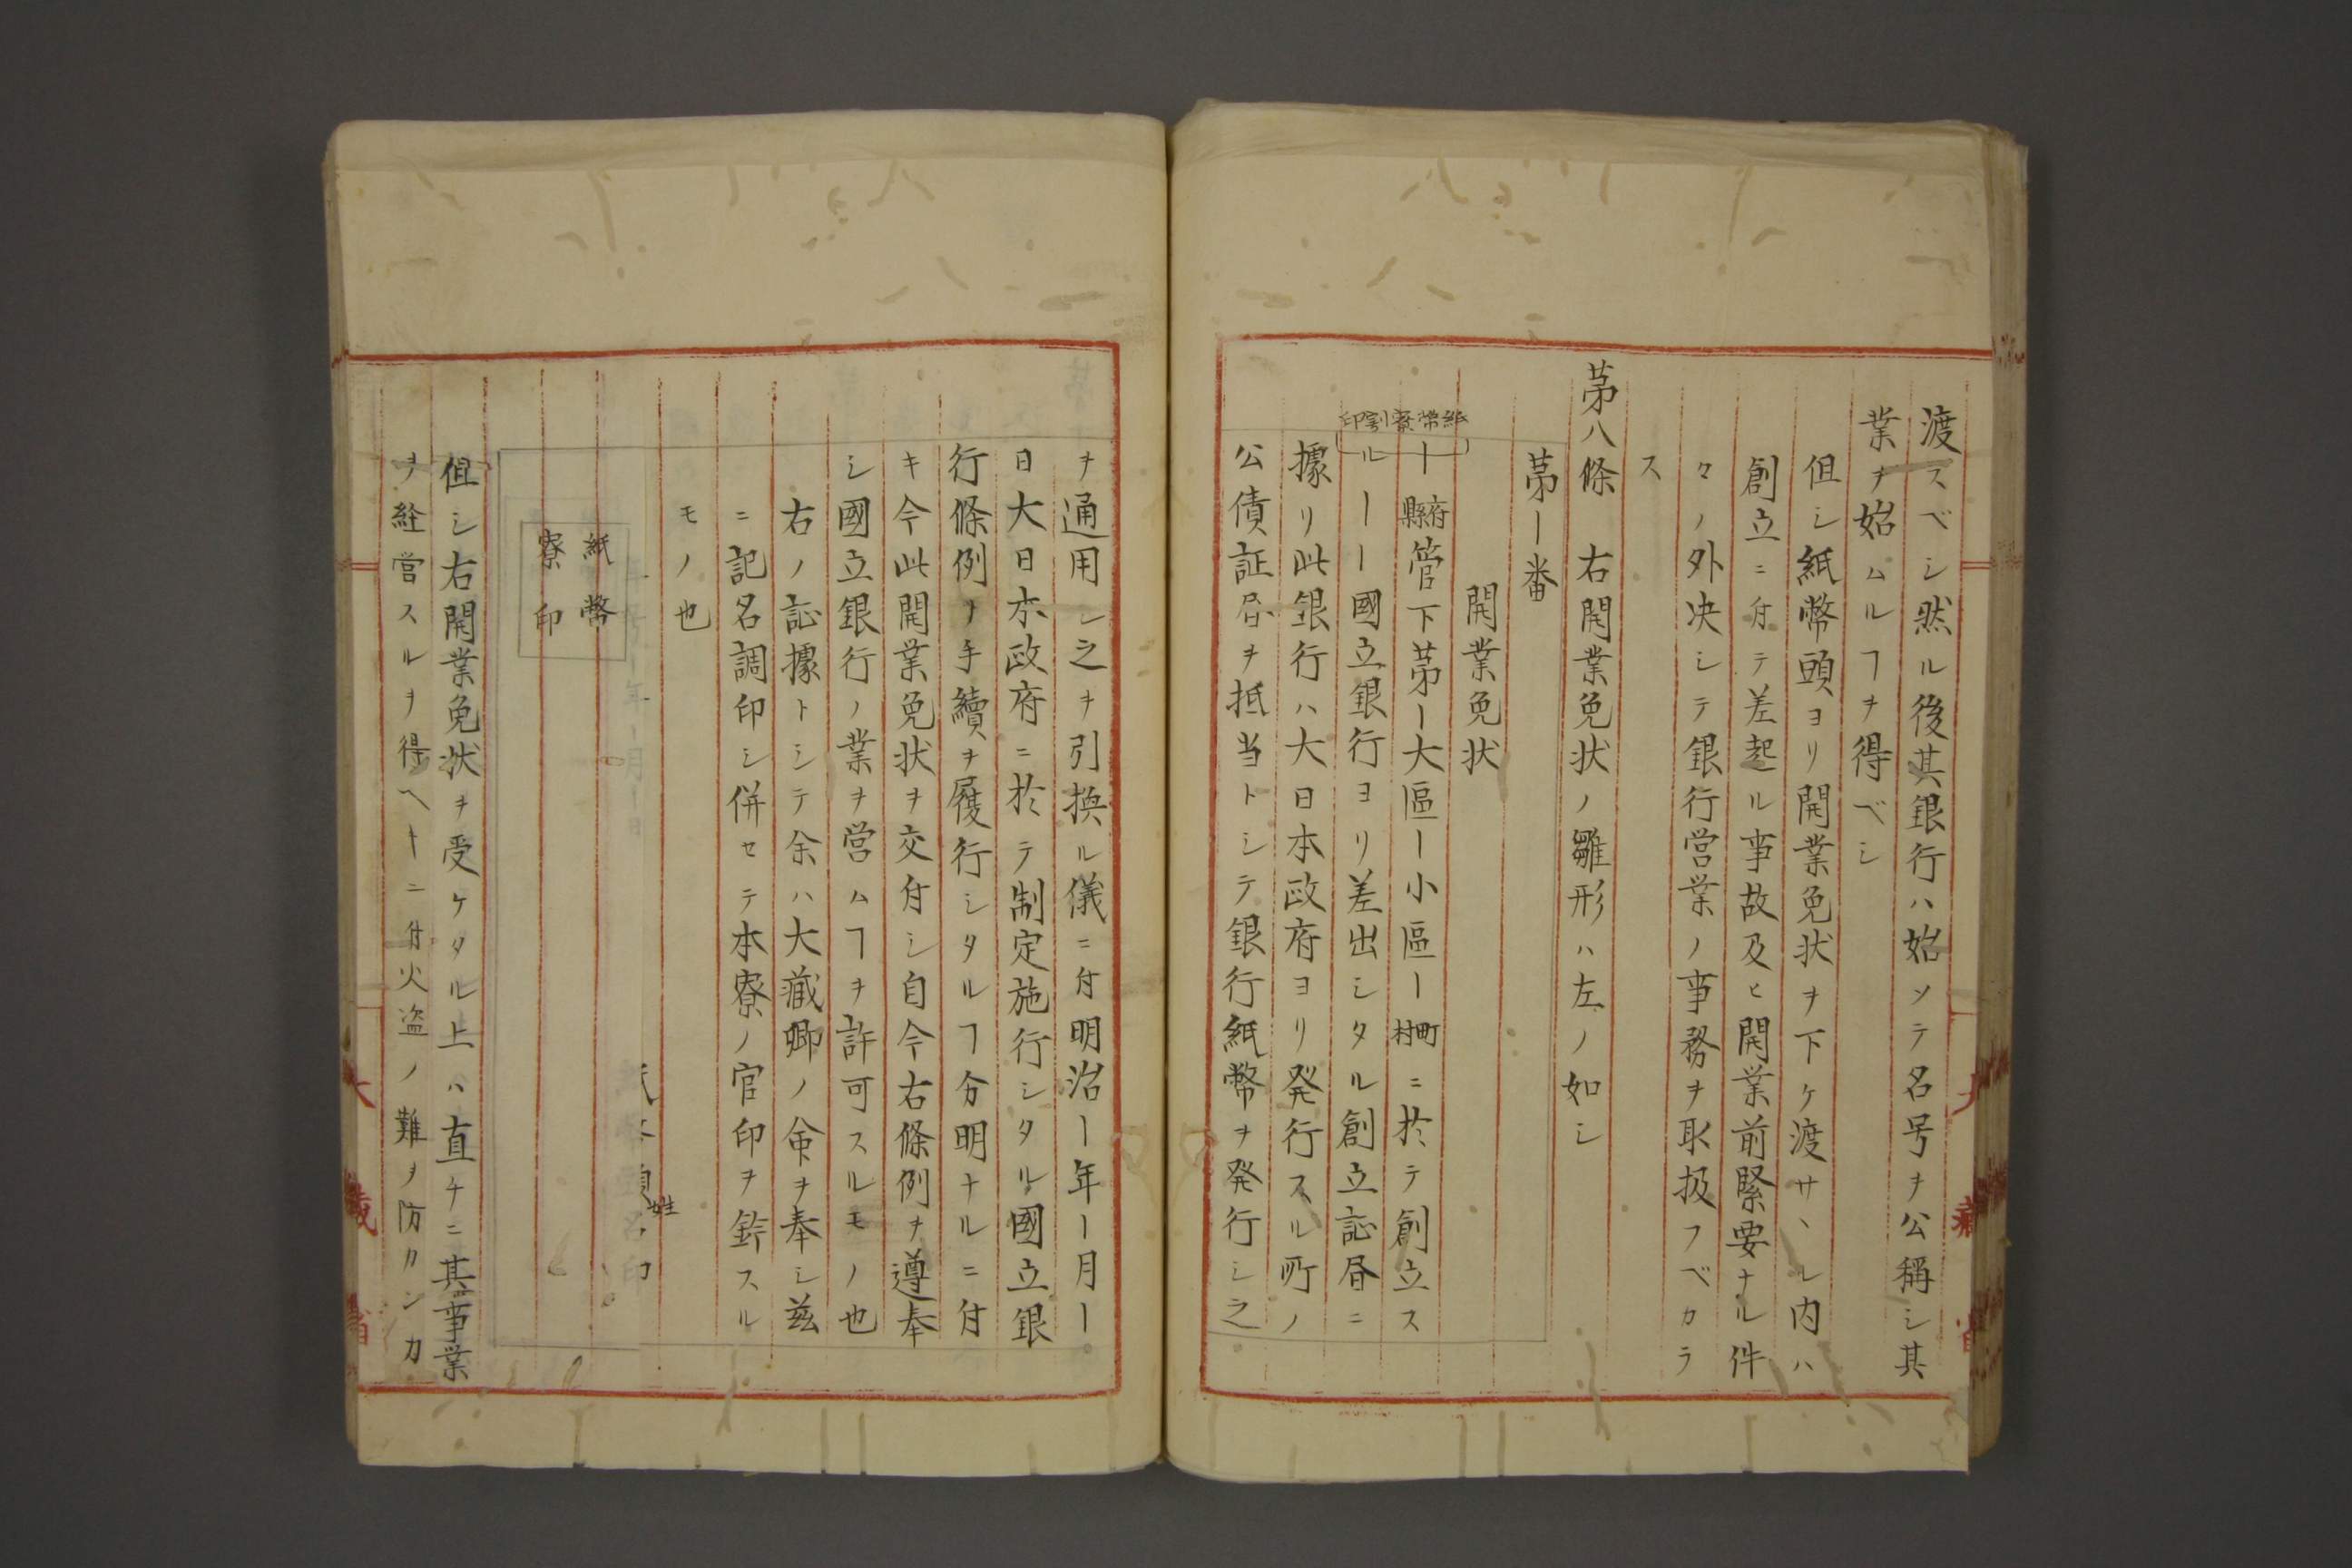 渡スベシ然ル後其銀行ハ始メテ名号ヲ公稱シ其
業ヲ始ムルヿヲ得ベシ
但シ紙幣頭ヨリ開業免状ヲ下ケ渡サヽレ内ハ
創立ニ付テ差起ル事故及ヒ開業前緊要ナル件
々ノ外决シテ銀行営業ノ事務ヲ取扱フベカラ
ス
苐八條 右開業免状ノ雛形ハ左ノ如シ
苐ー番
開業免状
紙幣寮割印
ー府縣管下苐ー大區ー小區ー町村ニ於テ創立ス
ルーー國立銀行ヨリ差出シタル創立証書ニ
據リ此銀行ハ大日本政府ヨリ発行スル所ノ
公債証書ヲ抵当トシテ銀行紙幣ヲ発行シ之
ヲ通用シ之ヲ引換ル儀ニ付明治ー年ー月ー
日大日本政府ニ於テ制定施行シタル國立銀
行條例ノ手續ヲ履行シタルヿ分明ナルニ付
キ今此開業免状ヲ交付シ自今右條例ヲ遵奉
シ國立銀行ノ業ヲ営ムヿヲ許可スルモノ也
右ノ証據トシテ余ハ大蔵卿ノ命ヲ奉シ茲
ニ記名調印シ併セテ本寮ノ官印ヲ鈐スル
モノ也
姓
紙幣
寮印
但シ右開業免状ヲ受ケタル上ハ直チニ其事業
ヲ経営スルヲ得ヘキニ付火盗ノ難ヲ防カンカ
大藏省
大藏省